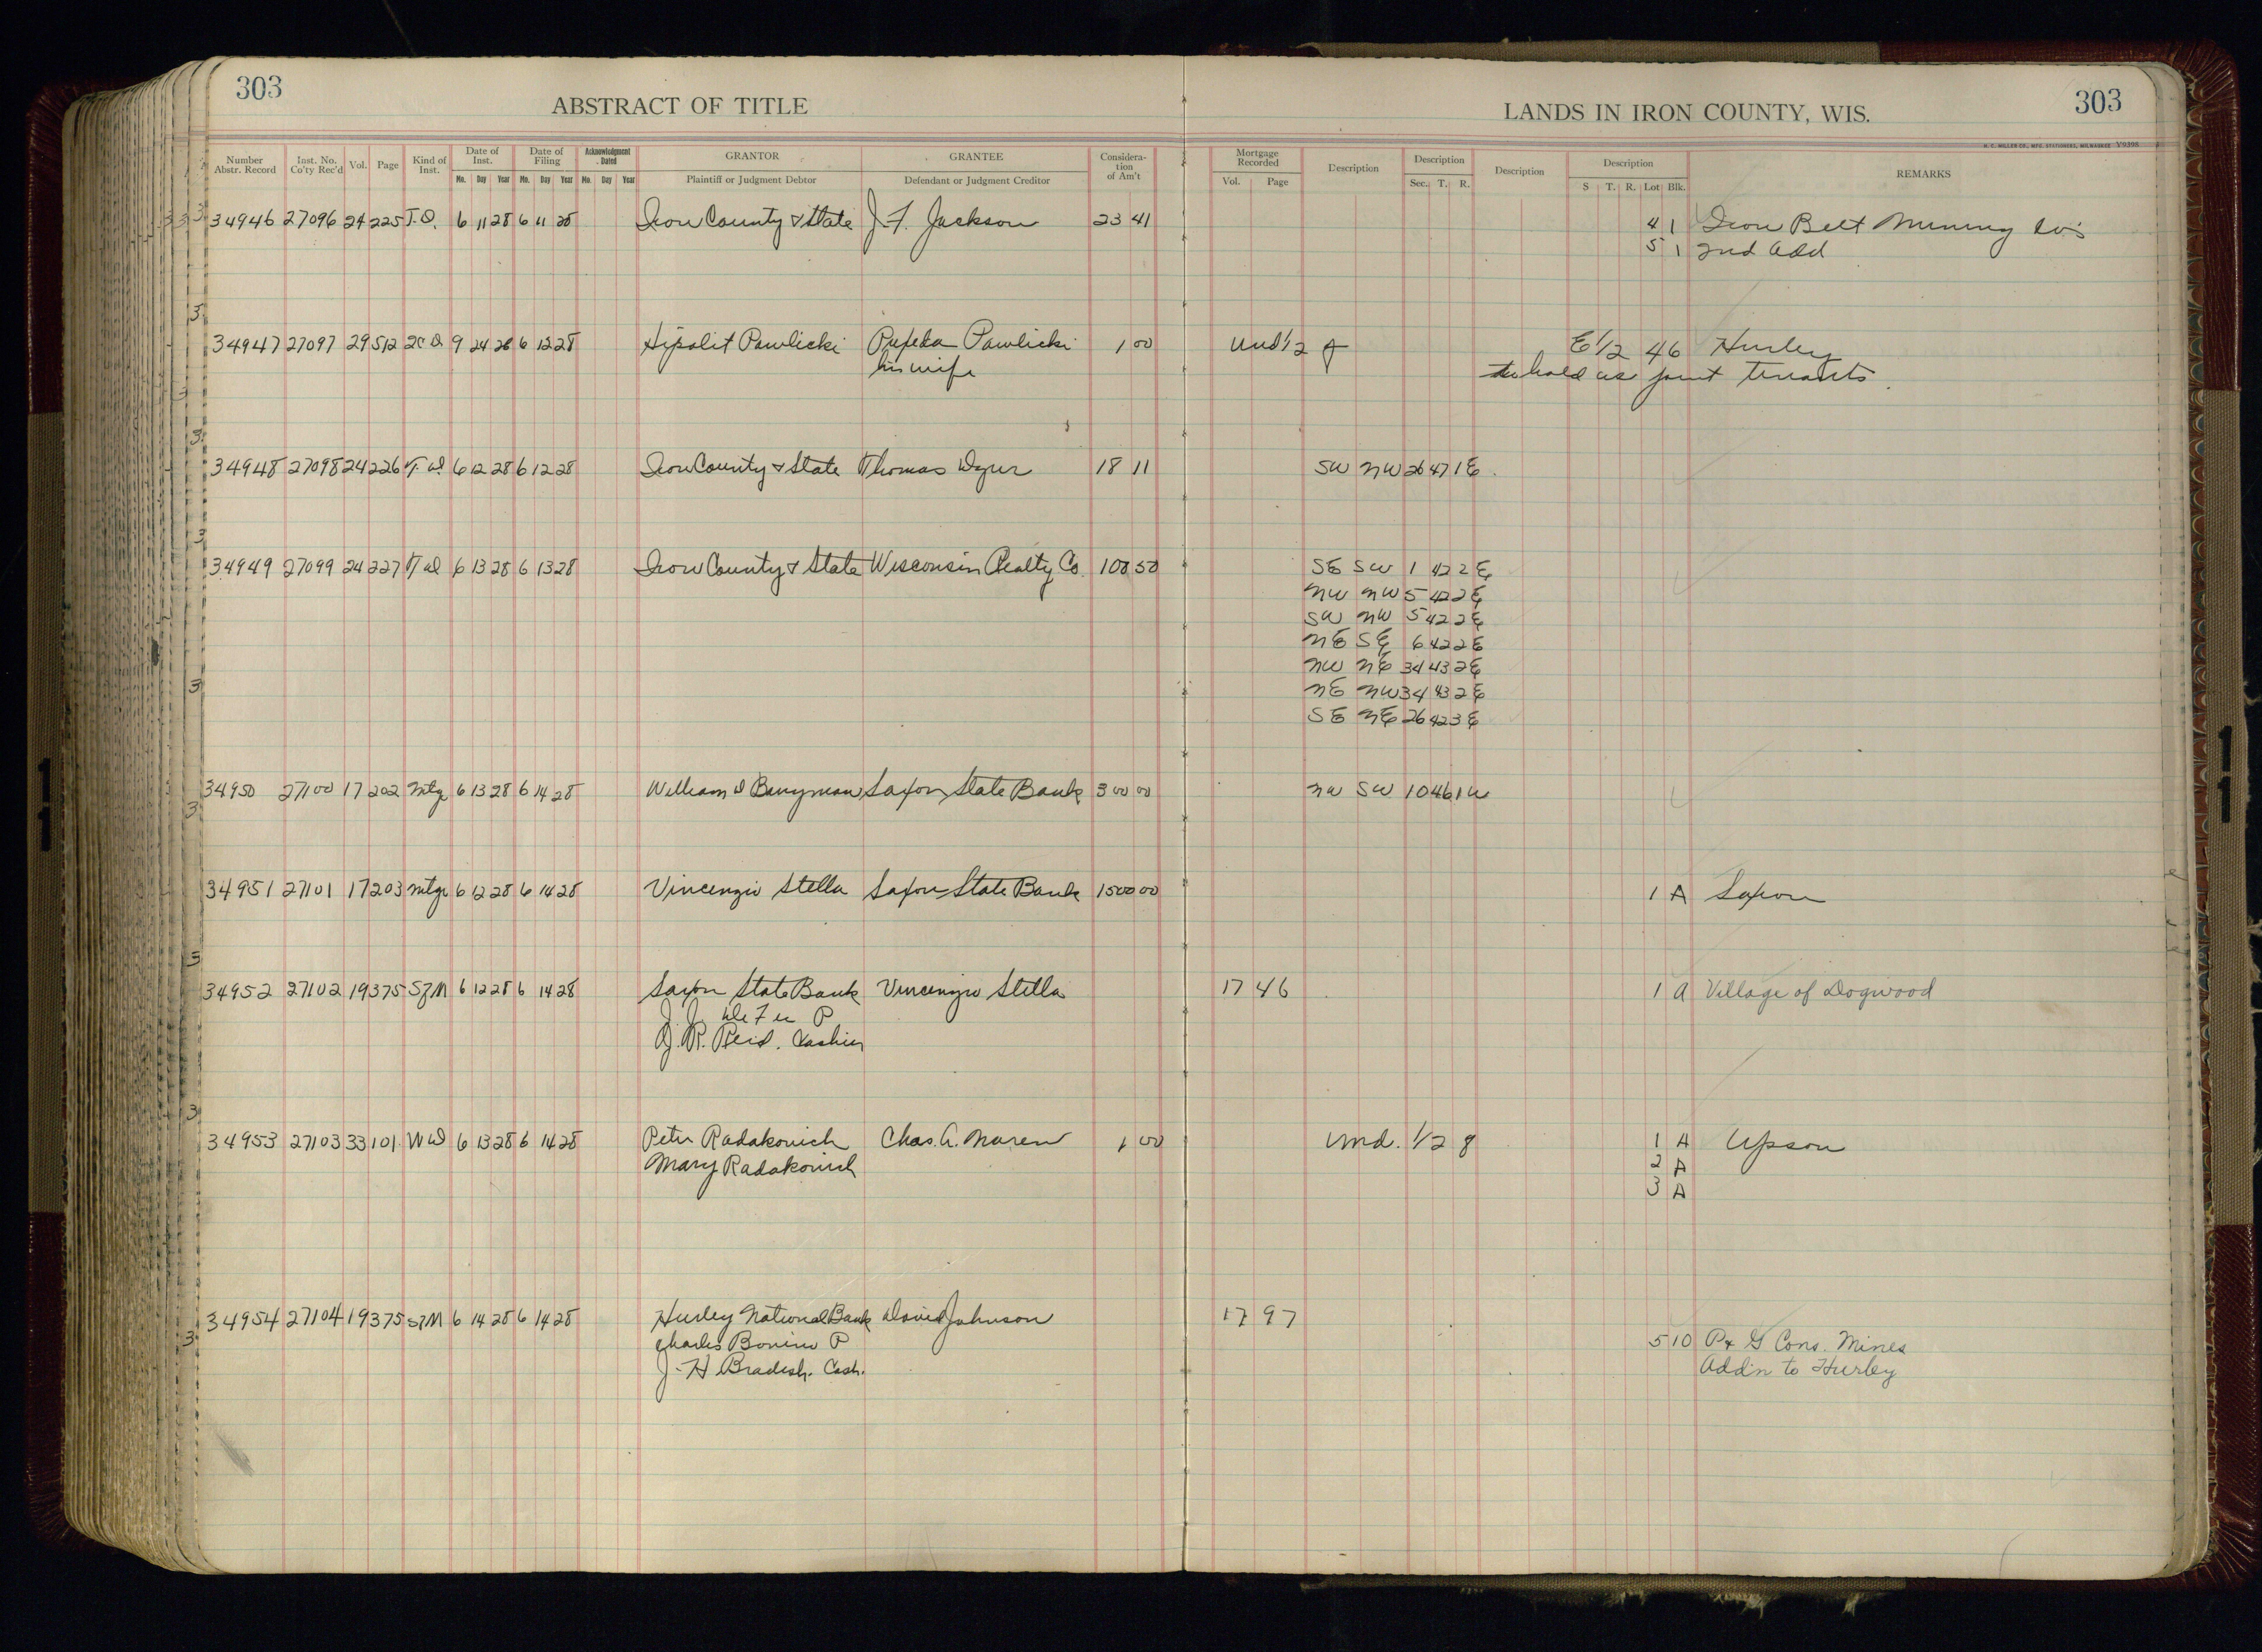 303
303
ABSTRACT OF TITLE
LANDS IN IRON COUNTY, WIS.
H. C. MILLER CO., MFG. STATIONERS, MILWAUKEE Y9398
Number Abstr. Record Inst. No. Co'ty Rec'd Vol. Page Kind of Inst. Date of Inst. Mo. Day Year Date of Filing Mo. Day Year Acknowledgment Dated Mo. Day Year GRANTOR Plaintiff or Judgment Debtor GRANTEE Defendant or Judgment Creditor Considera-tion of Am't Mortgage Recorded Vol. Page Description Description Sec. T. R. Description Description S T. R. Lot Blk. REMARKS
34946 27096 24 225 T.D. 6 11 28 6 11 28 Iron County & State J. F. Jackson 23 41 4 1 Iron Belt Mining Co's
5 1 2nd Add
34947 27097 29 512 2C D 9 24 26 6 12 28 Hipolit Pawlicki Pawlicki 1 00 Und 1/2 of E 1/2 46 Hurley
his wife to hold as joint tenants.
34948 27098 24 226 T. D. 6 12 28 6 12 28 Iron County & State Thomas Dyer 18 11 SW NW 26 47 1 E
34949 27099 24 227 T D 6 13 28 6 13 28 Iron County & State Wisconsin Realty Co. 108 50 SE SW 1 42 2 E
NW NW 5 42 2 E
SW NW 5 42 2 E
NE SE 6 42 2 E
NW NE 34 43 2 E
NE NW 34 43 2 E
SE NE 26 42 3 E
34950 27100 17 202 Mtge 6 13 28 6 14 28 William D Berryman Saxon State Bank 300 00 NW SW 10 46 1 W
34951 27101 17 203 Mtge 6 12 28 6 14 28 Vincenzio Stella Saxon State Bank 1500 00 1 A Saxon
34952 27102 19 375 SfM 6 12 28 6 14 28 Saxon State Bank Vincenzio Stella 17 46 1 A Village of Dogwood
J. J. P
J. R. Reid. Cashier
34953 27103 33 101 W D 6 13 28 6 14 28 Peter Radakovich Chas. A. Maren 1 00 Und. 1/2 of 1 A Upson
Mary Radakovich 2 A
3 A
34954 27104 19 375 SfM 6 14 28 6 14 28 Hurley National Bank David Johnson 17 97
Charles Bonino P 5 10 P & G Cons. Mines
J. H Bradish. Cash. Add'n to Hurley